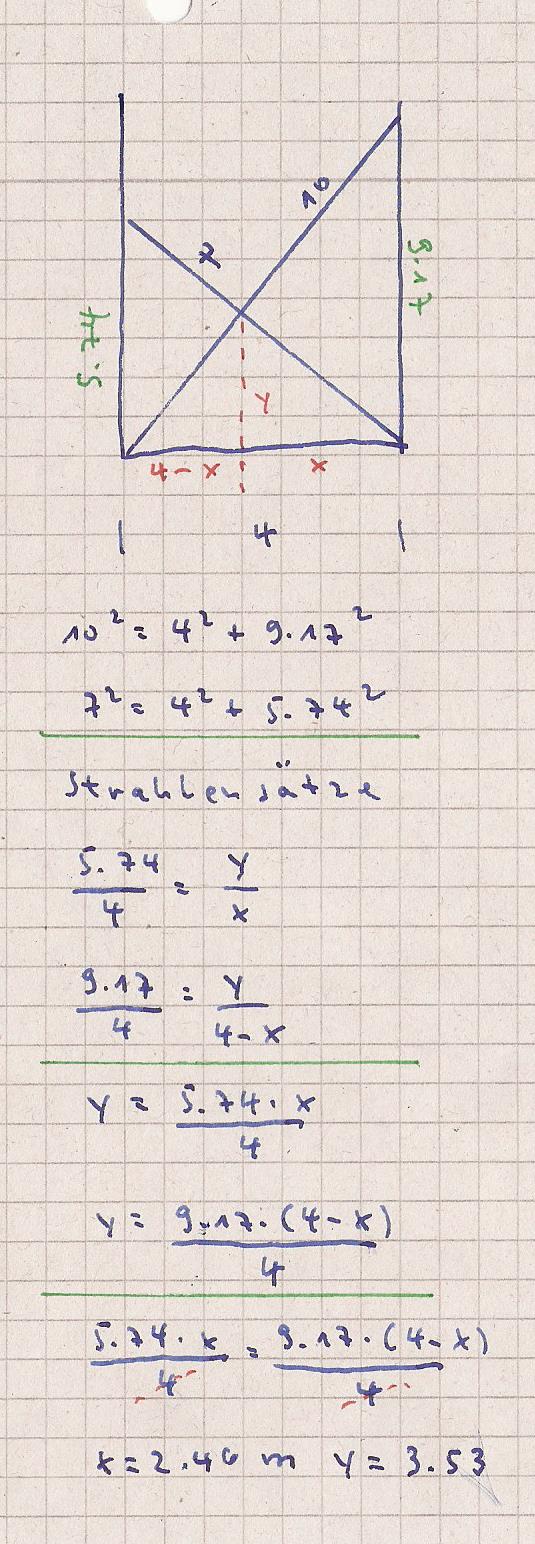 10
7
9.17
5.74
y
4-x x
4
10² = 4² + 9.17²
7² = 4² + 5.74²
Strahlensätze
5.74/4 = y/x
9.17/4 = y/4-x
y = 5.74·x/4
y = 9.17·(4-x)/4
5.74·x/4 = 9.17·(4-x)/4
x = 2.46 m y = 3.53